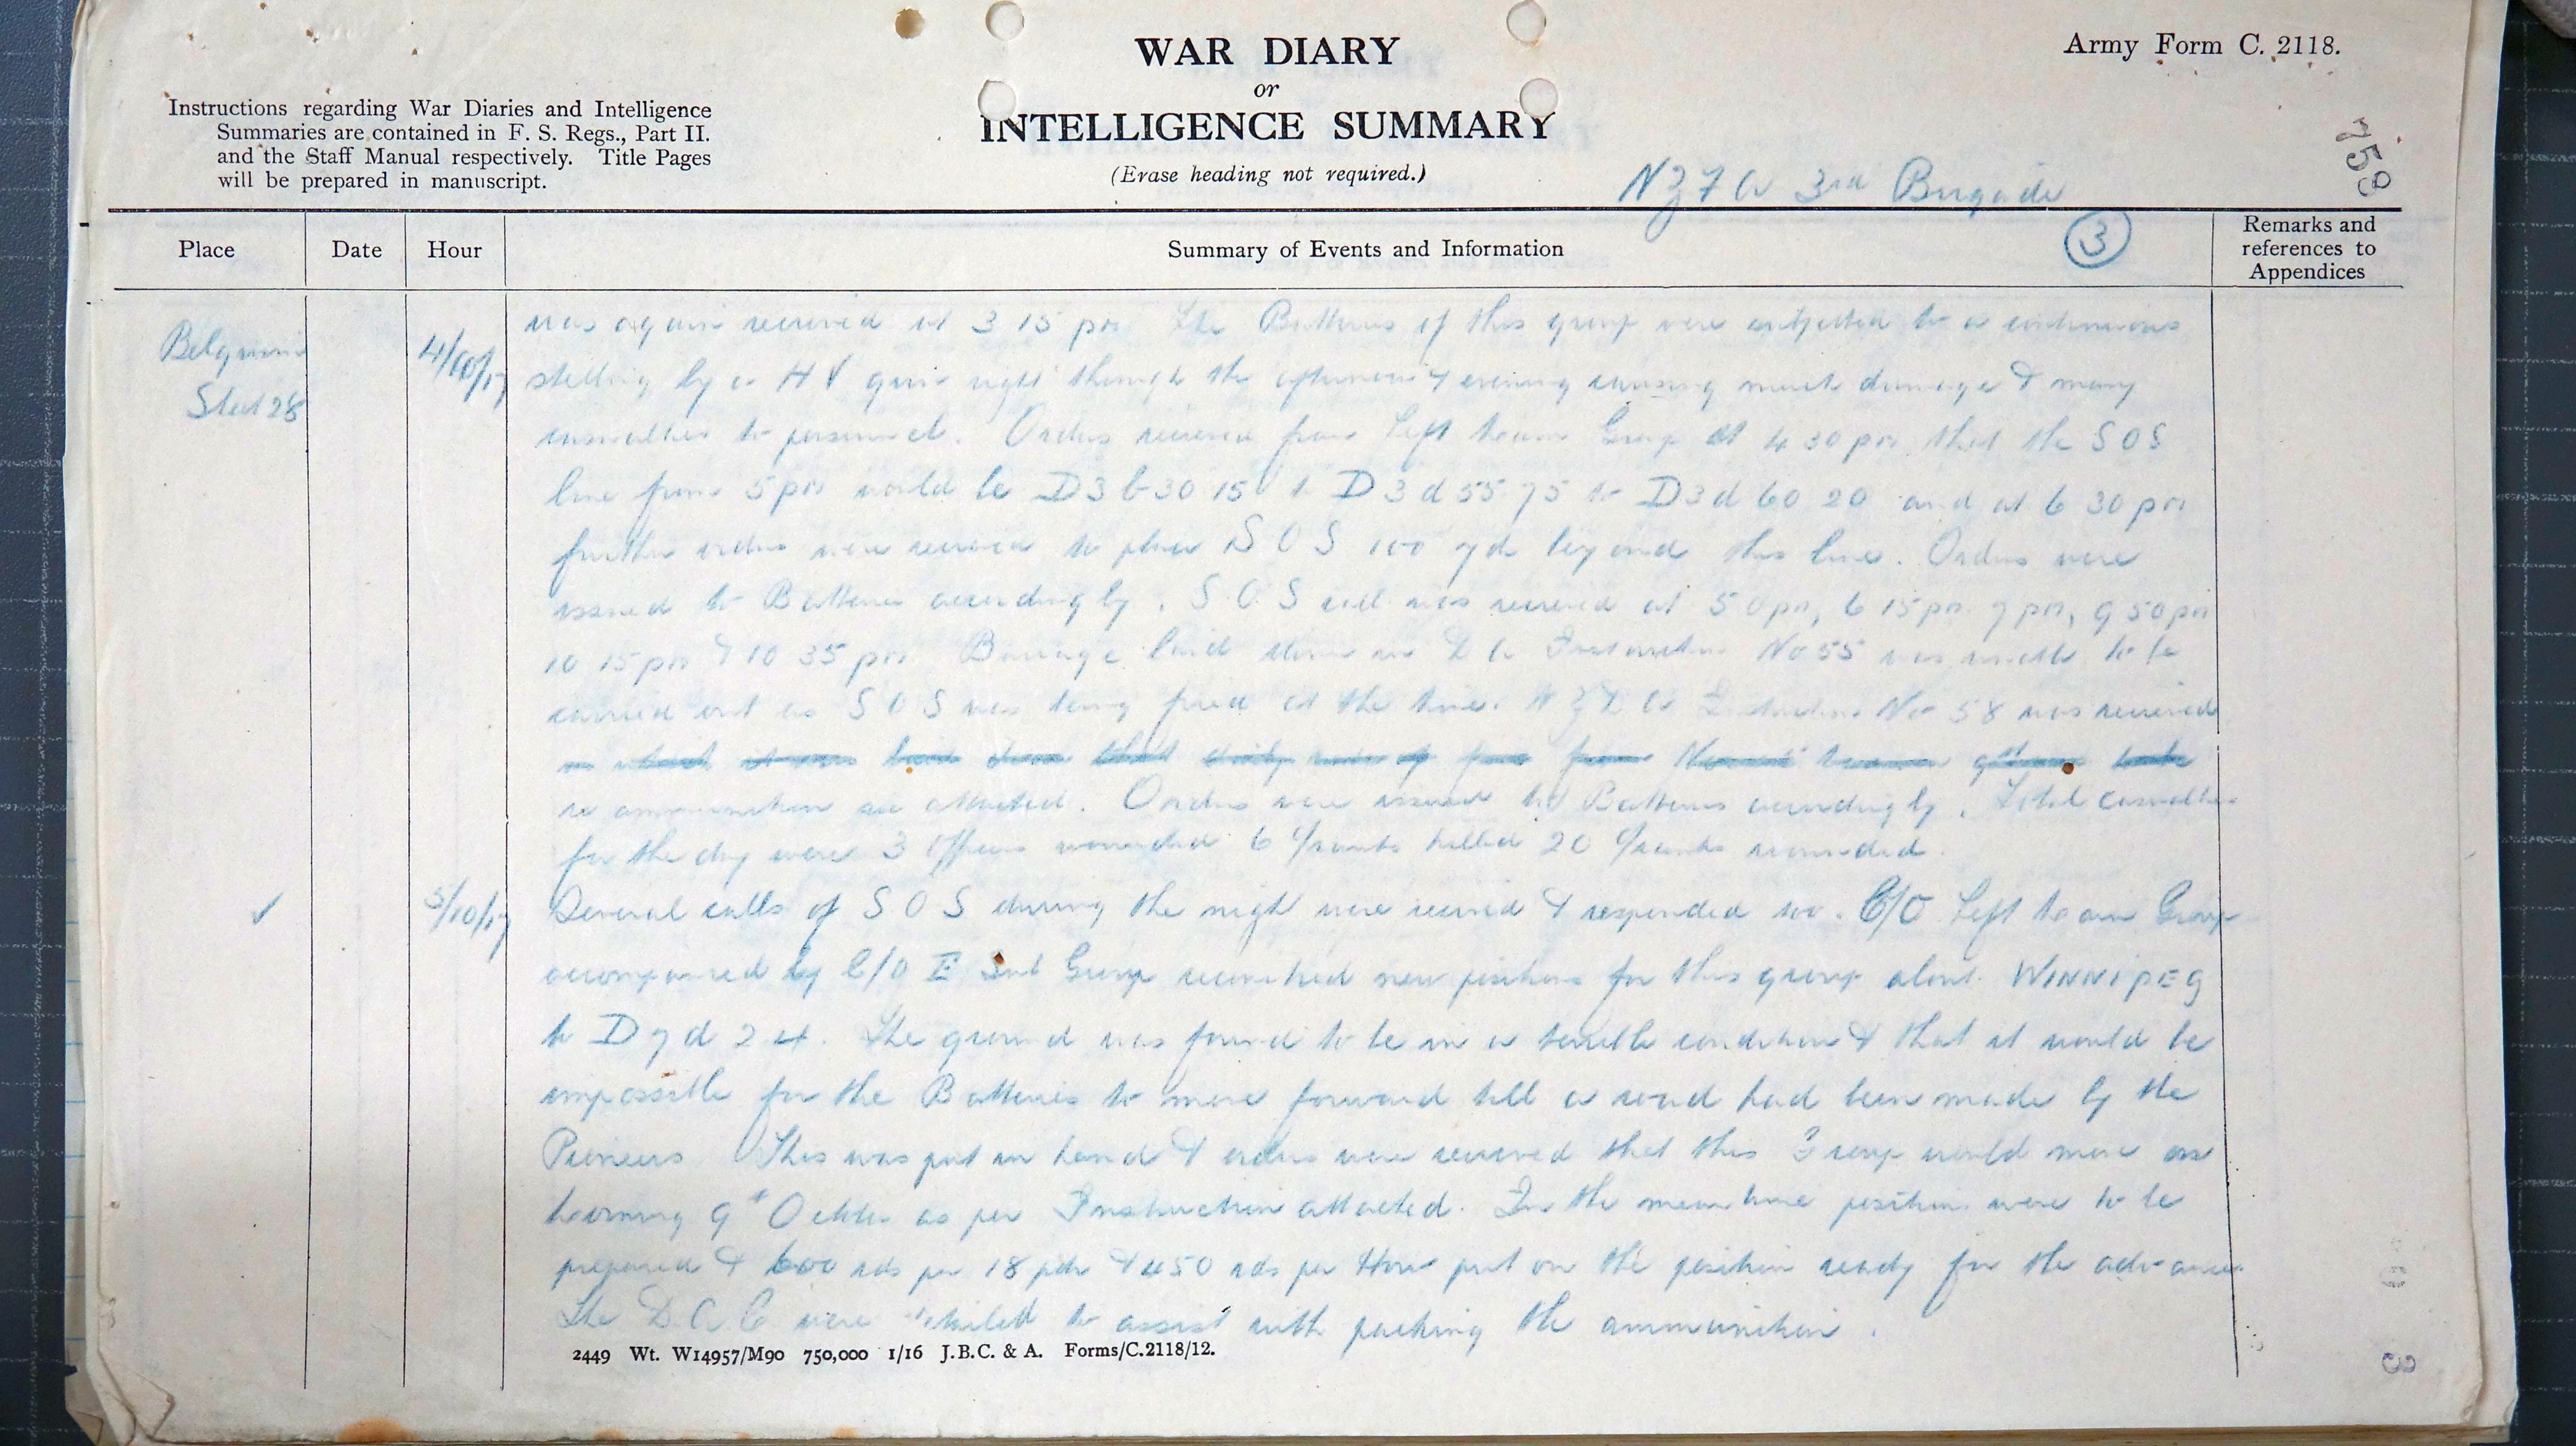 WAR DIARY
or
INTELLIGENCE SUMMARY
(Erase heading not required.)
Army Form C. 2118.
Instructions regarding War Diaries and Intelligence
Summaries are contained in F. S. Regs., Part II.
and the Staff Manual respectively. Title Pages
will be prepared in manuscript.
NZFA 3rd Brigade
759
3
Place
Date
Hour
Summary of Events and Information
Remarks and
references to
Appendices
Belgium
Sheet 28
4/10/17
was again received at 3 15 pm The Batteries of this group were subjected to a continuous
shelling by a HV gun right through the afternoon & evening causing much damage & many
casualties to personnel. Orders received from Left Group at 4 30 pm that the SOS
line from 5 pm would be D3 b 30 15 to D 3 d 55 75 to D3d 60 20 and at 6 30 pm
further orders were received to place SOS 100 yds beyond this line. Orders were
issued to Batteries accordingly. S.O.S call was received at 5 0 pm, 6 15 pm 7 pm, 9 50 pm
10 15 pm & 10 35 pm Barrage laid down in Instruction No 55 was unable to be
carried out as SOS was being fired at the time. Instruction No 58 was received
in which it was laid down that daily rate of fire from
re ammunition see attached. Orders were issued to Batteries accordingly. Total casualties
for the day were 3 Officers wounded 6 O/ranks killed 20 O/ranks wounded.
5/10/17
Several calls of S O S during the night were received & responded to. C/O Left Group
accompanied by C/O E Sub Group new positions for this group about WINNIPEG
to D 7 d 2 4. The ground was found to be in a terrible condition & that it would be
impossible for the Batteries to move forward till a road had been made by the
Pioneers This was put in hand & orders were received that this Group would move on
morning 9th October as per Instruction attached. In the meantime positions were to be
prepared & 600 rds per 18 pdr & 450 rds per How put on the position ready for the advance
The D.A.C. were detailed to assist with packing the ammunition.
2449 Wt. W14957/M90 750,000 1/16 J.B.C. & A. Forms/C.2118/12.